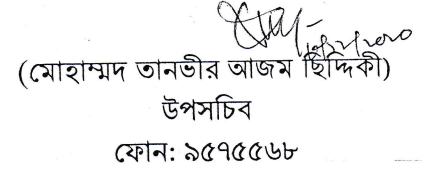 (মোহাম্মদ তানভীর আজম ছিদ্দিকী)
উপসচিব
ফোন: ৯৫৭৫৫৬৮